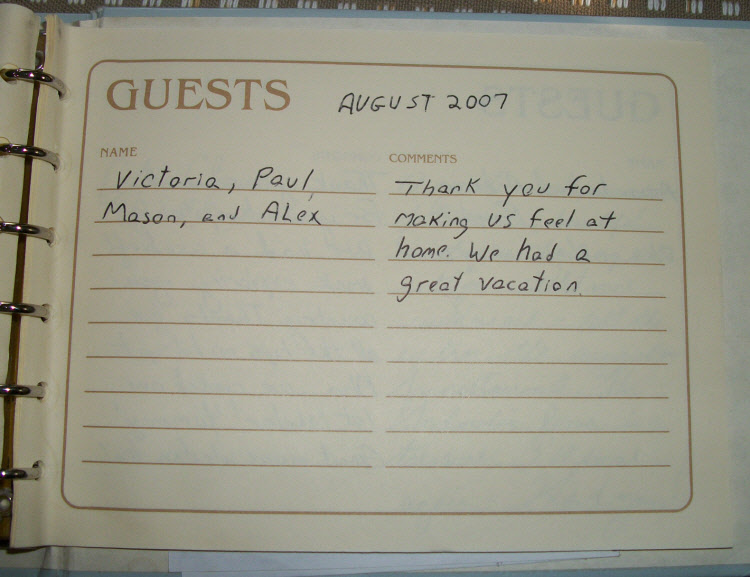 GUESTS AUGUST 2007
NAME
Victoria, Paul,
Mason, and ALex
COMMENTS
Thank you for
making us feel at
home. We had a
great vacation.